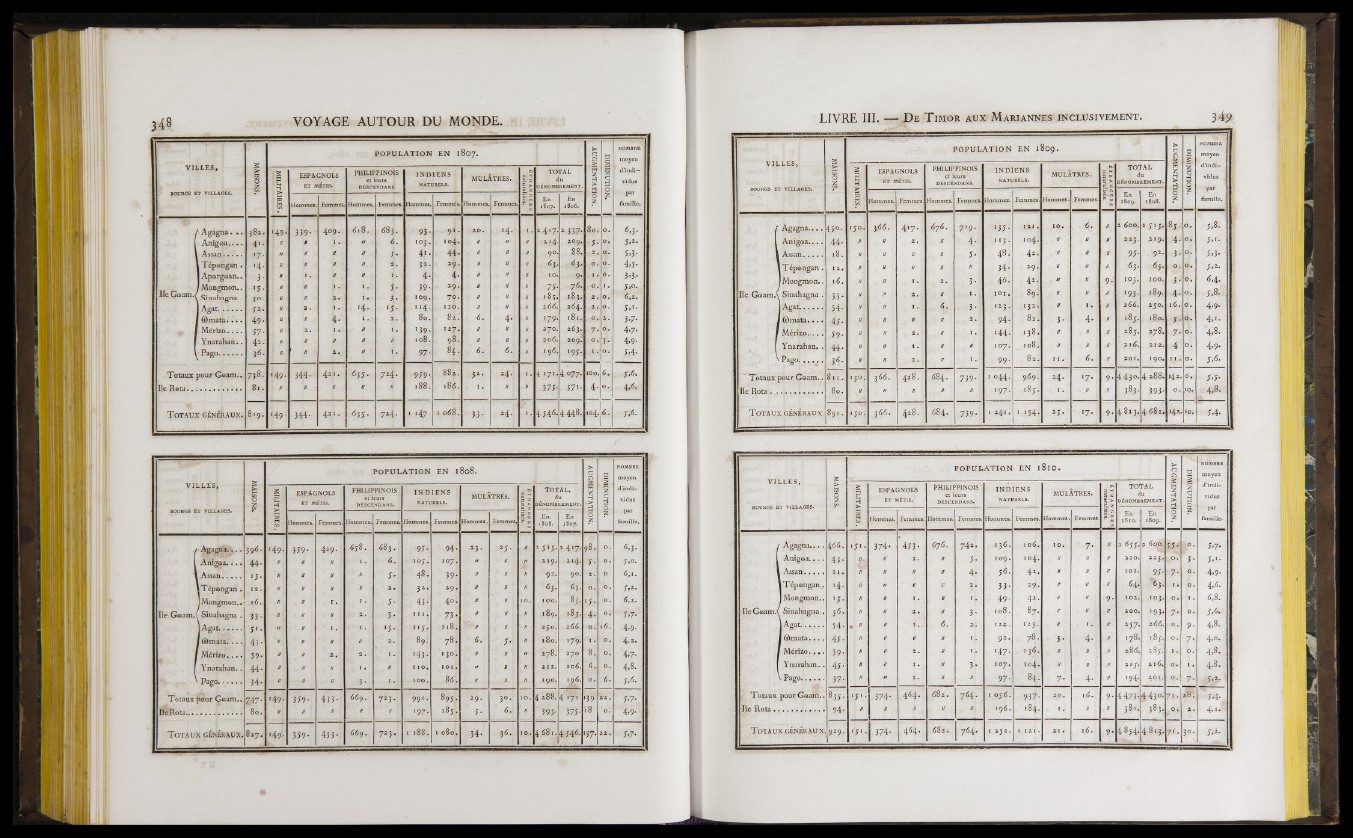 348 VOYAGE AUTOUR DU MONDE.
POPULATION EN 1807.
VILLES, BOURGS ET VILLAGES. MAISONS. MILITAIRES. ESPAGNOLS ET MÉTIS. PHILIPPINOIS et leurs DESCENDANS INDIENS NATURELS. MULÂTRES. TOTAL du DÉNOMBREMENT. AUGMENTATION. DIMINUTION. NOMBRE moyen d'indi-vidus par famille.
Hommes. Femmes. Hommes. Femmes. Hommes. Femmes. Hommes. Femmes. En 1807. En 1806.
Ile Goam.
Agagna... 382. 149. 339. 409. 618. 683. 93. 91. 20. 14. 1. 2 417. 2 337. 80. 0. 6,3.
Anigoa.... 41. " " 1. " 6. 103. 104. " " " 214. 209. 5. 0. 5,2.
Assan..... 17. " " " " 5. 41. 44. " " " 90. 88. 2. 0. 5,3.
Tépongan. 14. " " " " 2. 32. 29. " " " 63. 63. 0. 0. 4,5.
Aporgoan.. 3. " 1. " " 1. 4. 4. " " " 10. 9. 1. 0. 3,3.
Mongmon.. 15. " " 1. 1. 5. 39. 29. " " " 75. 76. 0. 1. 5,0.
Sinahagna. 30. " " 2. 1. 3. 109. 70. " " " 185. 183. 2. 0. 6,2.
Agat...... 52. " 2. 1. 14. 15. 114. 120. " " " 266. 264. 2. 0. 5,1.
Ømata.... 49. " " 4. 1. 2. 80. 82. 6. 4. " 179. 181. 0. 2. 3,7.
Mérizo.... 57. " 2. 1. " 1. 139. 127. " " " 270. 263. 7. 0. 4,7.
Ynarahan.. 42. " " " " " 108. 98. " " " 206. 209. 0. 3. 4,9.
Pago...... 36. " " 2. " 1. 97. 84. 6. 6. " 196. 195. 1. 0. 5,4.
Totaux pour Goam.. 738. 149. 344. 421. 635. 724. 959. 882. 32. 24. 1. 4 171. 4 077. 100. 6. 5,6.
Ile Rota............. 81. " " " " " 188. 186. 1. " " 375. 371. 4. 0. 4,6.
TOTAUX GÉNÉRAUX. 819. 149. 344. 421. 635. 724. 1 147. 1 068. 33. 24. 1. 4 546. 4 448. 104. 6. 5,6.
POPULATION EN 1808.
VILLES, BOURGS ET VILLAGES. MAISONS. MILITAIRES. ESPAGNOLS ET MÉTIS. PHILIPPINOIS et leurs DESCENDANS. INDIENS NATURELS. MULÂTRES. TOTAL du DÉNOMBREMENT. AUGMENTATION. DIMINUTION. NOMBRE moyen d'indi-vidus par famille.
Hommes. Femmes. Hommes. Femmes. Hommes. Femmes. Hommes. Femmes. En 1808. En 1807.
Ile Goam.
Agagna.... 396. 149. 359. 429. 658. 683. 95. 94. 23. 25. " 2 515. 2 417. 98. 0. 6,3.
Anigoa.... 44. " " " 1. 6. 105. 107. " " " 219. 214. 5. 0. 5,0.
Assan..... 15. " " " " 5. 48. 39. " " " 92. 90. 2. 0. 6,1.
Tépongan. 12. " " " " 2. 32. 29. " " " 63. 63. 0. 0. 5,2.
Mongmon.. 16. " " 1. 1. 5. 43. 40. " " 10. 100. 85. 15. 0. 6,2.
Sinahagna. 33. " " " 2. 3. 111. 73. " " " 189. 185. 4. 0. 5,7.
Agat...... 51. " " 1. 1. 15. 115. 118. " " " 250. 266. 0. 16. 4,9.
Ømata.... 43. " " " " 2. 89. 78. 6. 5. " 180. 179. 1. 0. 4,2.
Mérizo.... 59. " " 2. 2. 1. 143. 130. " " " 278. 270. 8. 0. 4,7.
Ynarahan.. 44. " " " 1. " 110. 101. " " " 212. 206. 6. 0. 4,8.
Pago...... 34. " " " 3. 1. 100. 86. " " " 190. 196. 0. 6. 5,6.
Totaux pour Goam.. 747. 149. 359. 433. 669. 723. 991. 895. 29. 30. 10. 4 288. 4 171. 139. 22. 5,7.
Ile Rota............. 80. " " " " " 197. 185. 5. 6. " 393. 375. 18. 0. 4,9.
TOTAUX GÉNÉRAUX. 827. 149. 359. 433. 669. 723. 1 188. 1 080. 34. 36. 10. 4 681. 4 546. 157. 22. 5,7.
LIVRE III. — DE TIMOR AUX MARIANNES INCLUSIVEMENT. 349
POPULATION EN 1809.
VILLES, BOURGS ET VILLAGES. MAISONS. MILITAIRES. ESPAGNOLS ET MÉTIS. PHILIPPINOIS et leurs DESCENDANS. INDIENS NATURELS. MULÂTRES. TOTAL du DÉNOMBREMENT. AUGMENTATION. DIMINUTION. NOMBRE moyen d'indi-vidus par famille.
Hommes. Femmes. Hommes. Femmes. Hommes. Femmes. Hommes. Femmes. En 1809. En 1808.
Ile Goam.
Agagna.... 450. 150. 366. 417. 676. 719. 135. 121. 10. 6. " 2 600. 2 515. 85. 0. 5,8.
Anigoa.... 44. " " 2. " 4. 113. 104. " " " 223. 219. 4. 0. 5,1.
Assan..... 18. " " " " 5. 48. 42. " " " 95. 92. 3. 0. 5,3.
Tépongan. 12. " " " " " 34. 29. " " " 63. 63. 0. 0. 5,2.
Mongmon.. 16. " " 1. 2. 3. 46. 42. " " 9. 103. 100. 3. 0. 6,4.
Sinahagna. 33. " " 2. " 1. 101. 89. " " " 193. 189. 4. 0. 5,8.
Agat...... 54. " " 1. 6. 3. 123. 132. " 1. " 266. 250. 16. 0. 4,9.
Ømata.... 45. " " " " 2. 94. 82. 3. 4. " 185. 180. 5. 0. 4,1.
Mérizo.... 59. " " 2. " 1. 144. 138. " " " 285. 278. 7. 0. 4,8.
Ynarahan.. 44. " " 1. " " 107. 108. " " " 216. 212. 4. 0. 4,9.
Pago...... 36. " " 2. " 1. 99. 82. 11. 6. " 201. 190. 11. 0. 5,6.
Totaux pour Goam.. 811. 150. 366. 428. 684. 739. 1 044. 969. 24. 17. 9. 4 430. 4 288. 142. 0. 5,5.
Ile Rota............ 80. " " " " " 197. 185. 1. " " 383. 393. 0. 10. 4,8.
TOTAUX GÉNÉRAUX. 891. 150. 366. 428. 684. 739. 1 241. 1 154. 25. 17. 9. 4 813. 4 681. 142. 10. 5,4.
POPULATION EN 1810.
VILLES, BOURGS ET VILLAGES. MAISONS. MILITAIRES. ESPAGNOLS ET MÉTIS. PHILIPPINOIS et leurs DESCENDANS. INDIENS NATURELS. MULÂTRES. TOTAL du DÉNOMBREMENT. AUGMENTATION. DIMINUTION. NOMBRE moyen d'indi-vidus par famille.
Hommes. Femmes. Hommes. Femmes. Hommes. Femmes. Hommes. Femmes. En 1810. En 1809.
Ile Goam.
Agagna.... 466. 151. 374. 453. 676. 742. 136. 106. 10. 7. " 2 655. 2 600. 55. 0. 5,7.
Anigoa.... 43. " " 2. " 5. 109. 104. " " " 220. 223. 0. 3. 5,1.
Assan..... 21. " " " " 4. 56. 42. " " " 102. 95. 7. 0. 4,9.
Tépongan. 14. " " " " 2. 33. 29. " " " 64. 63. 1. 0. 4,6.
Mongmon.. 15. " " 1. " 1. 49. 42. " " 9. 102. 103. 0. 1. 6,8.
Sinahagna. 36. " " 2. " 3. 108. 87. " " " 200. 193. 7. 0. 5,6.
Agat...... 54. " " 1. 6. 2. 122. 125. " 1. " 257. 266. 0. 9. 4,8.
Ømata.... 45. " " " " 1. 92. 78. 3. 4. " 178. 185. 0. 7. 4,0.
Mérizo.... 59. " " 2. " 1. 147. 136. " " " 286. 285. 1. 0. 4,8.
Ynarahan.. 45. " " 1. " 3. 107. 104. " " " 215. 216. 0. 1. 4,8.
Pago...... 37. " " 2. " " 97. 84. 7. 4. " 194. 201. 0. 7. 5,2.
Totaux pour Goam.. 835. 151. 374. 464. 682. 764. 1 056. 937. 20. 16. 9. 4 473. 4 430. 71. 28. 5,4.
Ile Rota............ 94. " " " " " 196. 184. 1. " " 381. 383. 0. 2. 4,1.
TOTAUX GÉNÉRAUX. 929. 151. 374. 464. 682. 764. 1 252. 1 121. 21. 16. 9. 4 854. 4 813. 71. 30. 5,2.